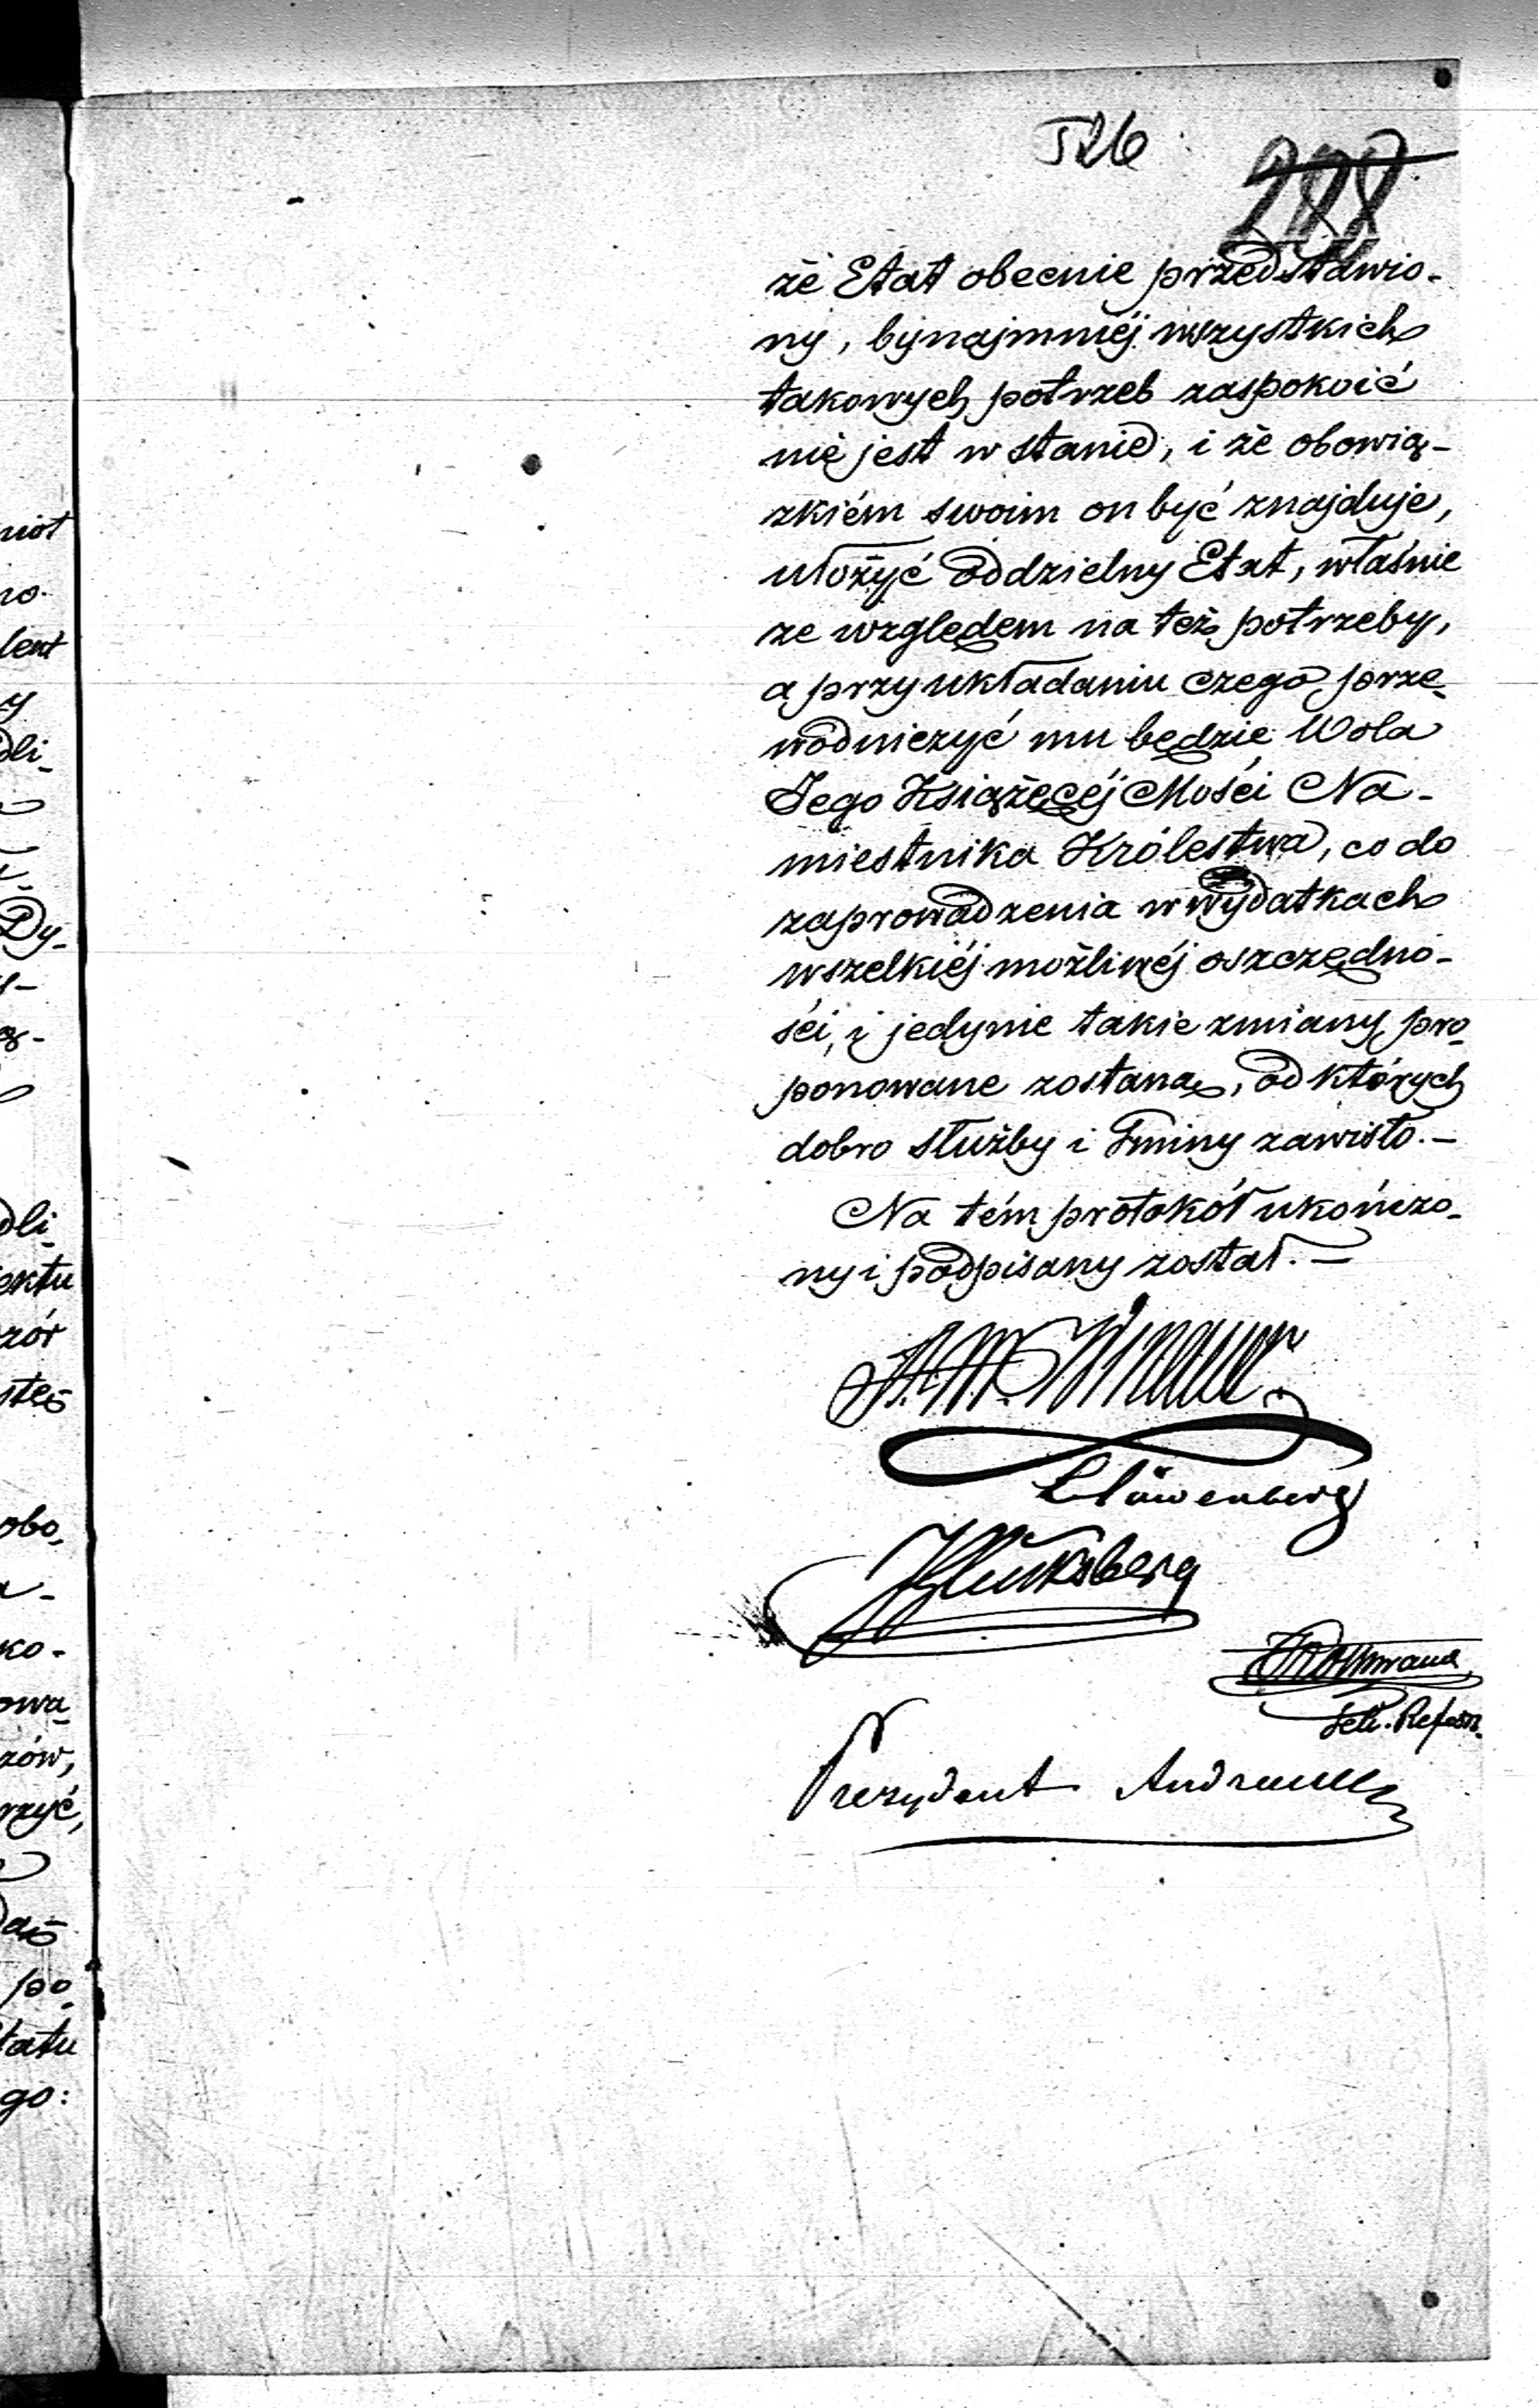 526
288
że Etat obecnie przedstawio-
ny, bynajmniéj wszystkich
takowych potrzeb zaspokoić
nie jest w stanie, i że obowią-
zkiém swoim on być znajduje,
ułożyć oddzielny Etat, właśnie
ze względem na też potrzeby,
a przy układaniu czego prze-
wodniczyć mu będzie Wola
Jego Książęcéj Mości Na-
miestnika Królestwa, co do
zaprowadzenia w wydatkach
wszelkiéj możliwéj oszczędno-
ści, i jedynie takie zmiany pro-
ponowane zostaną, od których
dobro służby i Gminy zawisło.-
Na tém protokół ukończo-
ny i podpisany został.-
Löwenberg
Glücksberg
Prezydent
niot
no.
lent
y
dli-
Dy-
dli-
ektu
zór
obo-
ko-
owa-
rów,
rzyć,
po-
tatu
go: